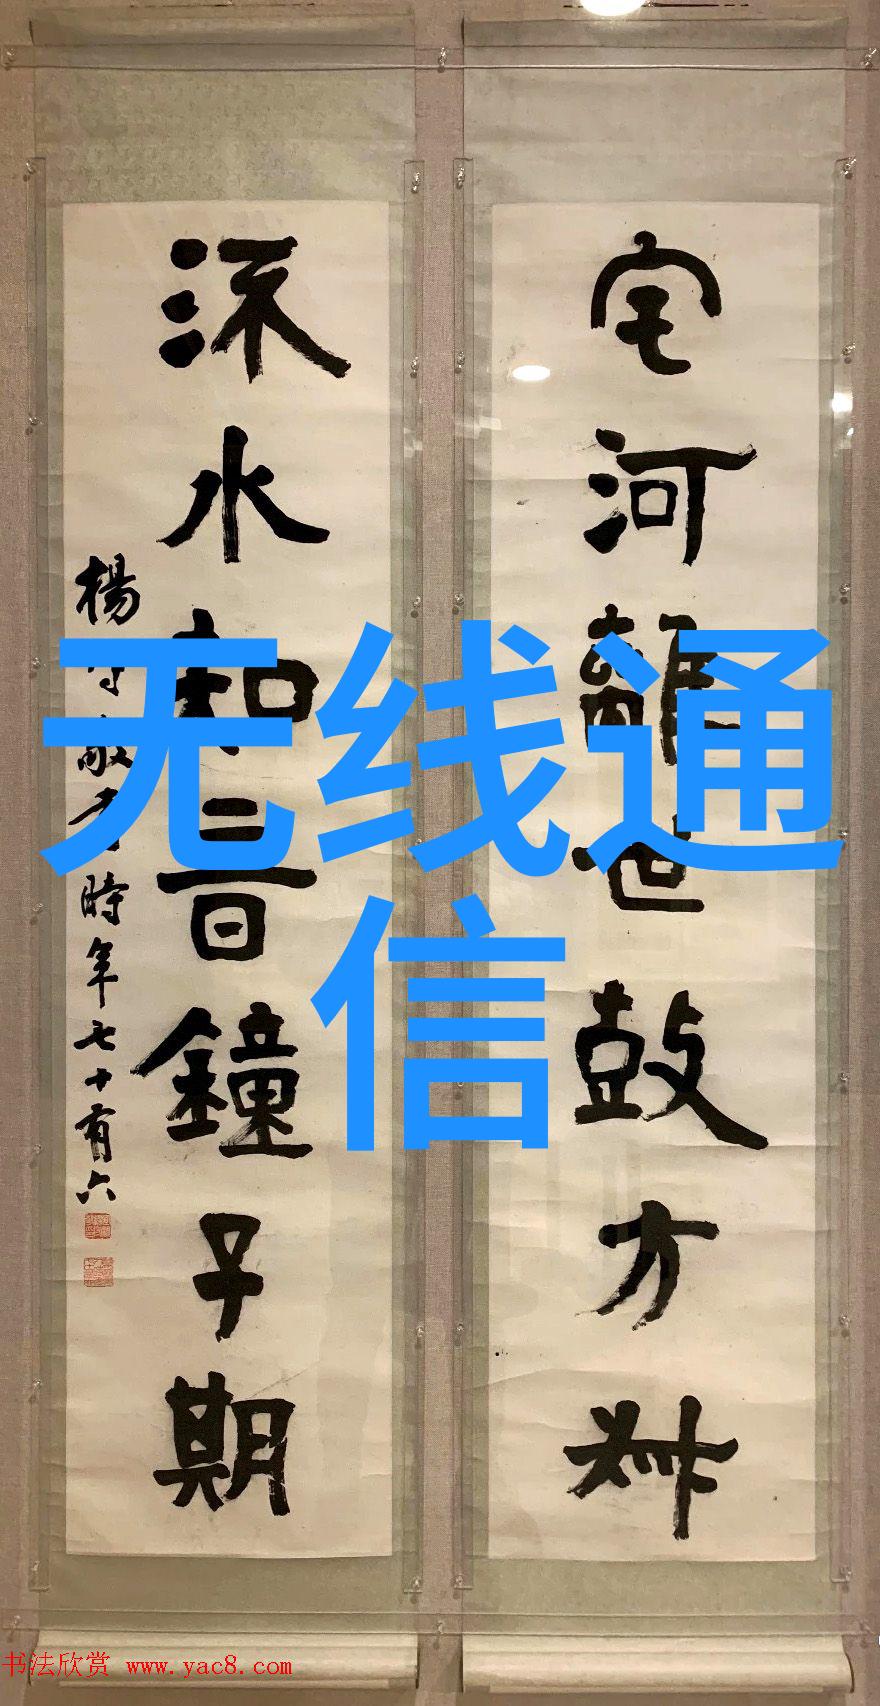 宅河世鼓方叔
流水知音鐘子期
楊守敬書時年七十有六
无线通
信
书法欣赏 www.yac8.com